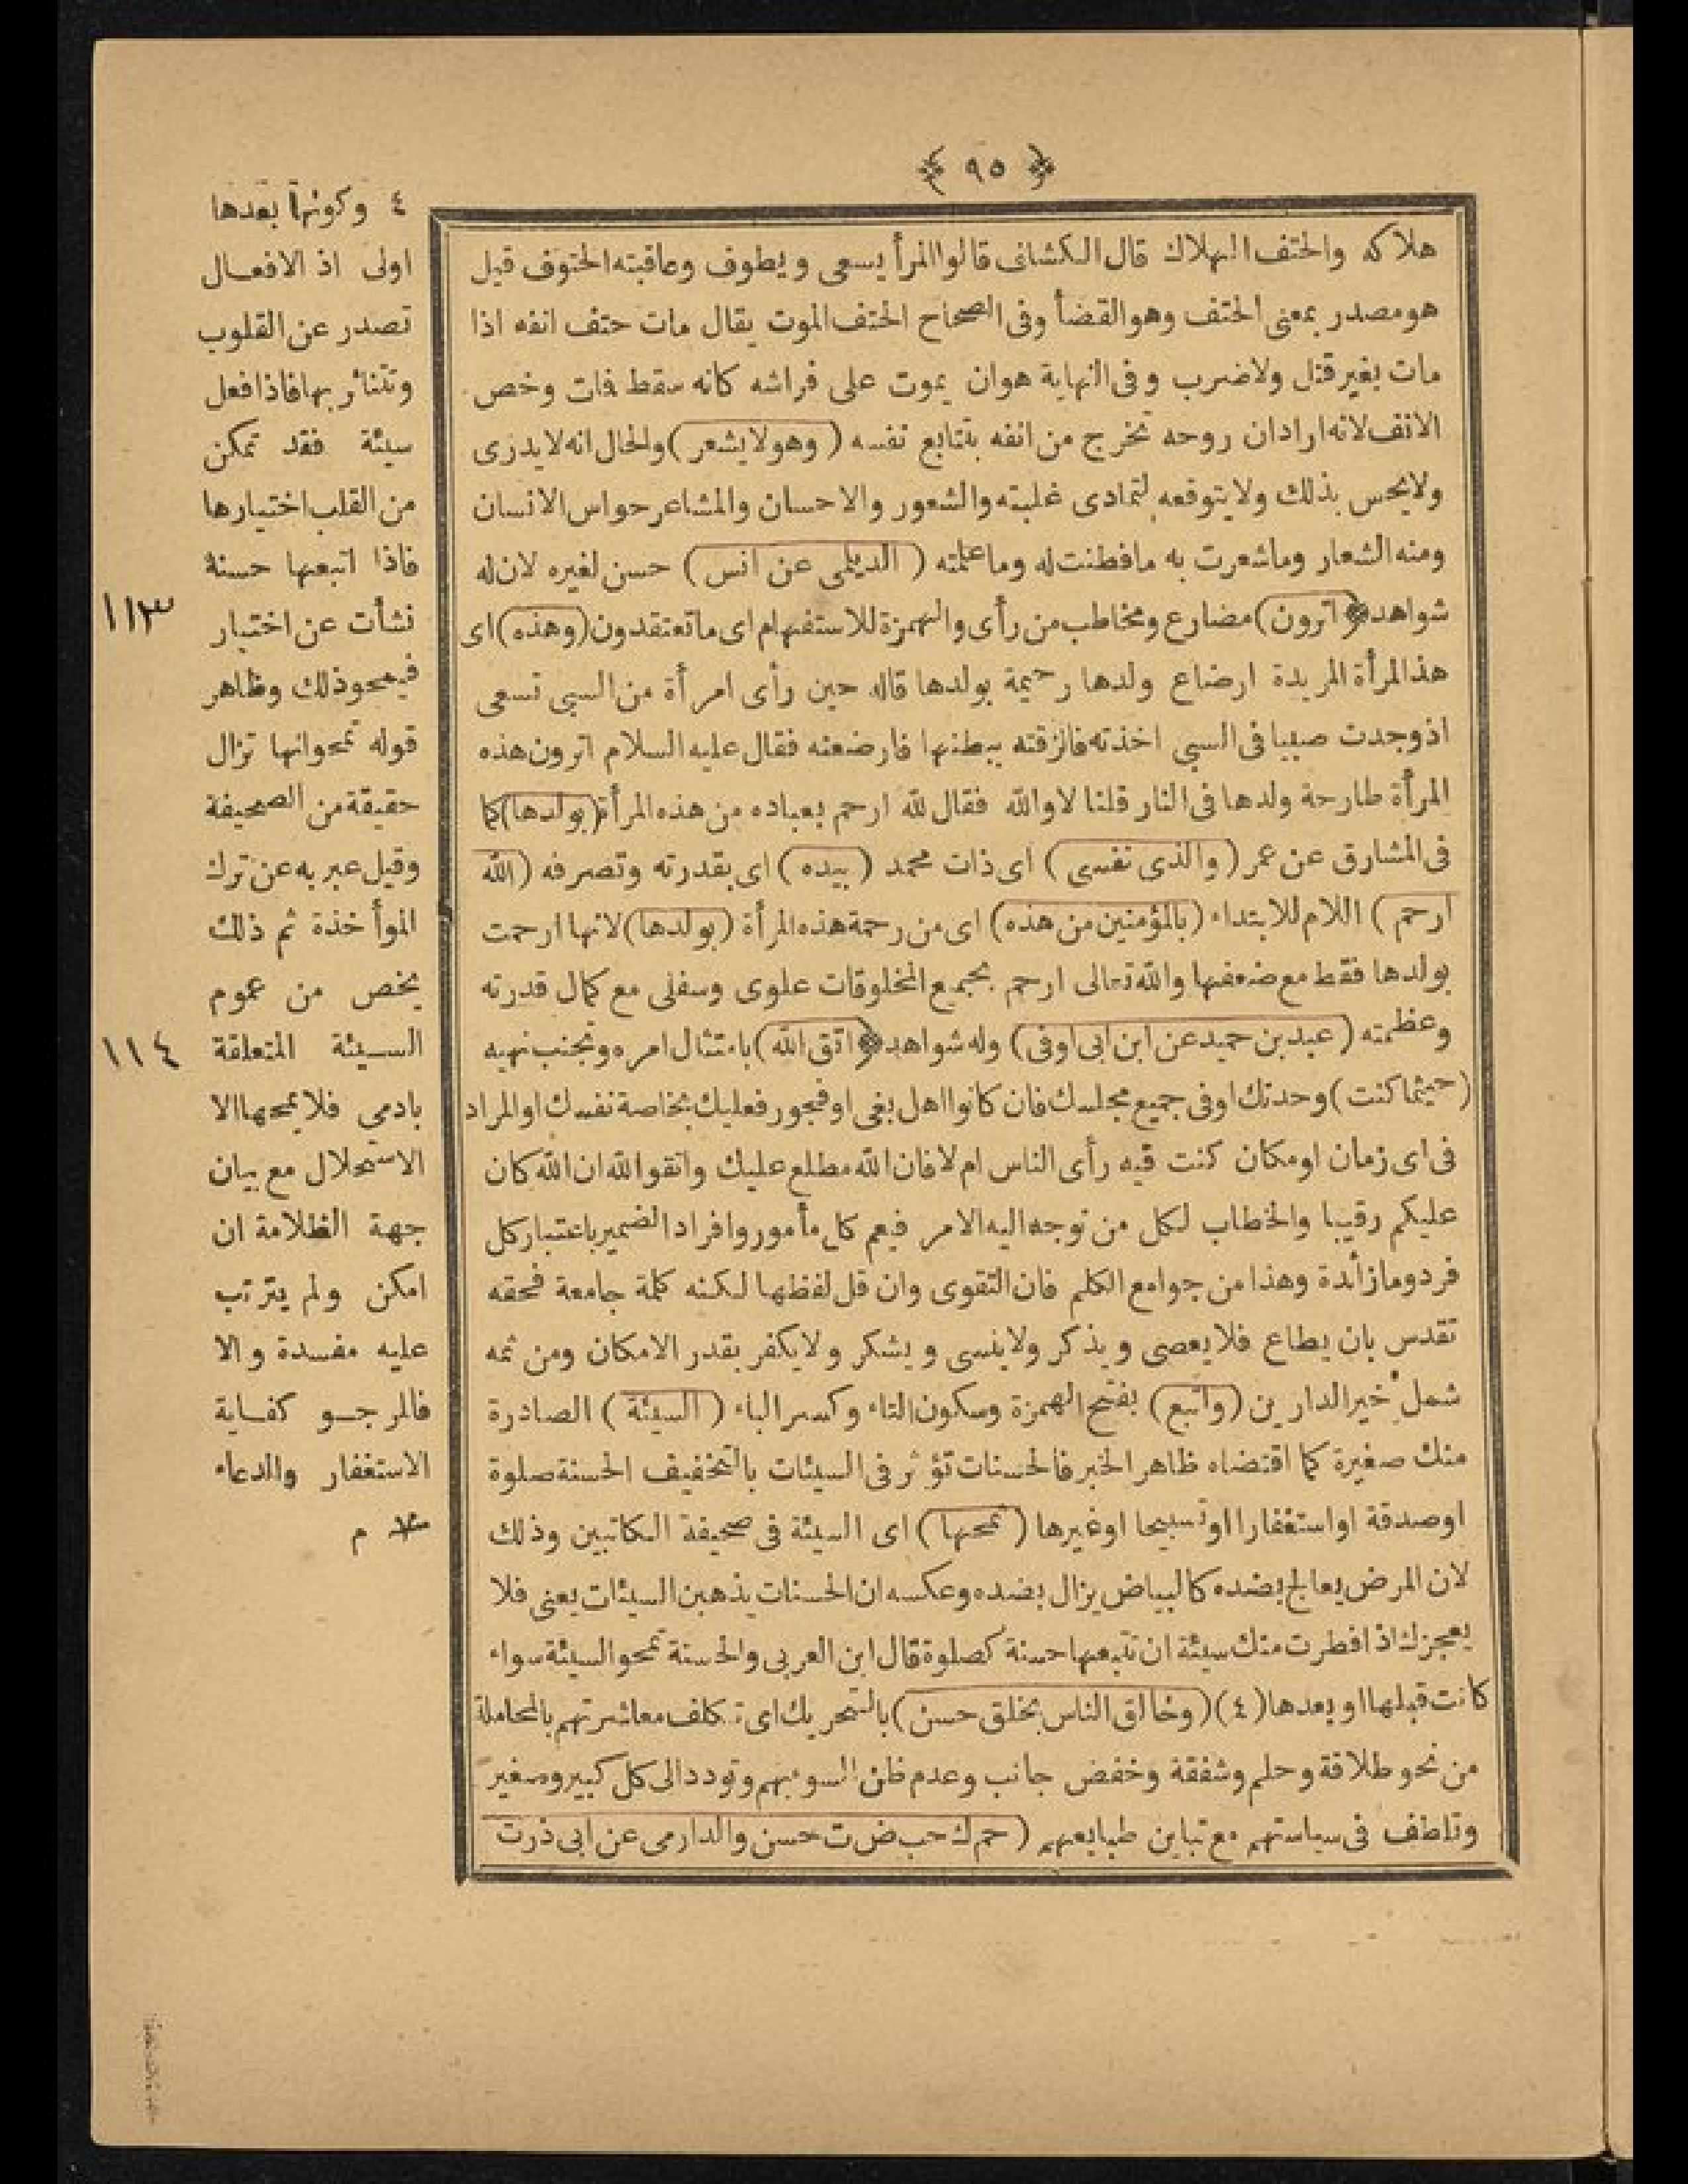 ﴿ ٩٥ ﴾
هلاكه والحتف الهلاك قال الكشانى قالوا المرأ يسعى ويطوف وعاقبته الحتوف قيل
هو مصدر بمعنى الحتف وهو القضأ وفى الصحاح الحتف الموت يقال مات حتف انفه اذا
مات بغير قتل ولا ضرب وفى النهاية هو ان يموت على فراشه كانه سقط فمات وخص
الانف لانه اراد ان روحه تخرج من انفه بتتابع نفسه ( وهو لا يشعر ) والحال انه لا يدرى
ولا يحس بذلك ولا يتوقعه لتمادى غلبته والشعور والاحسان والمشاعر حواس الانسان
ومنه الشعار وما شعرت به ما فطنت له وما علمته ( الديلمى عن انس ) حسن لغيره لان له
شواهد ﴿ اترون ) مضارع ومخاطب من رأى والهمزة للاستفهام اى ما تعتقدون ( وهذه ) اى
هذ المرأة المريدة ارضاع ولدها رحيمة بولدها قاله حين رأى امرأة من السبى تسعى
اذ وجدت صبيا فى السبى اخذته فالزقته ببطنها فارضعته فقال عليه السلام اترون هذه
المرأة طارحة ولدها فى النار قلنا لا والله فقال لله ارحم بعباده من هذه المرأة ( بولدها ) كما
فى المشارق عن عمر ( والذى نفسى ) اى ذات محمد ( بيده ) اى بقدرته وتصرفه ( الله
ارحم ) اللام للابتداء ( بالمؤمنين من هذه ) اى من رحمة هذه المرأة ( بولدها ) لانها ارحمت
بولدها فقط مع ضعفها والله تعالى ارحم بجميع المخلوقات علوى وسفلى مع كمال قدرته
وعظمته ( عبد بن حميد عن ابن ابى اوفى ) وله شواهد ﴿ اتق الله ) بامتثال امره وتجنب نهيه
( حيثما كنت ) وحدتك او فى جميع مجلسك فان كانوا اهل بغى او فجور فعليك بخاصة نفسك او المراد
فى اى زمان او مكان كنت فيه رأى الناس ام لا فان الله مطلع عليك واتقوا الله ان الله كان
عليكم رقيبا والخطاب لكل من توجه اليه الامر فيعم كل مأمور وافراد الضمير باعتبار كل
فرد وما زأئدة وهذا من جوامع الكلم فان التقوى وان قل لفظها لكنه كلمة جامعة فحقه
تقدس بان يطاع فلا يعصى ويذكر ولا ينسى ويشكر ولا يكفر بقدر الامكان ومن ثمه
شمل خير الدارين ( واتبع ) بفتح الهمزة وسكون التاء وكسر الباء ( السيئة ) الصادرة
منك صغيرة كما اقتضاه ظاهر الخبر فالحسنات تؤثر فى السيئات بالتخفيف الحسنة صلوة
او صدقة او استغفارا او تسبيحا او غيرها ( تمحها ) اى السيئة فى صحيفة الكاتبين وذلك
لان المرض يعالج بضده كالبياض يزال بضده وعكسه ان الحسنات يذهبن السيئات يعنى فلا
يعجزك اذ افطرت منك سيئة ان تتبعها حسنة كصلوة قال ابن العربى والحسنة تمحو السيئة سواء
كانت قبلها او بعدها ( ٤ ) ( وخالق الناس بخلق حسن ) بالتحريك اى تكلف معاشرتهم بالمجاملة
من نحو طلاقة وحلم وشفقة وخفض جانب وعدم ظن السوء بهم وتودد الى كل كبير وصغير
وتلطف فى سياستهم مع تباين طبايعهم ( حم ك حب ض ت حسن والدارمى عن ابى ذر ت
٤ وكونها بعدها
اولى اذ الافعال
تصدر عن القلوب
وتتأثر بها فاذا فعل
سيئة فقد تمكن
من القلب اختيارها
فاذا اتبعها حسنة
نشأت عن اختيار
فيمحو ذلك وظاهر
قوله تمحو انها تزال
حقيقة من الصحيفة
وقيل عبر به عن ترك
المؤأخذة ثم ذلك
يخص من عموم
السيئة المتعلقة
بادمى فلا يمحها الا
الاستحلال مع بيان
جهة الظلامة ان
امكن ولم يترتب
عليه مفسدة والا
فالمرجو كفاية
الاستغفار والدعاء
م
١١٣
١١٤